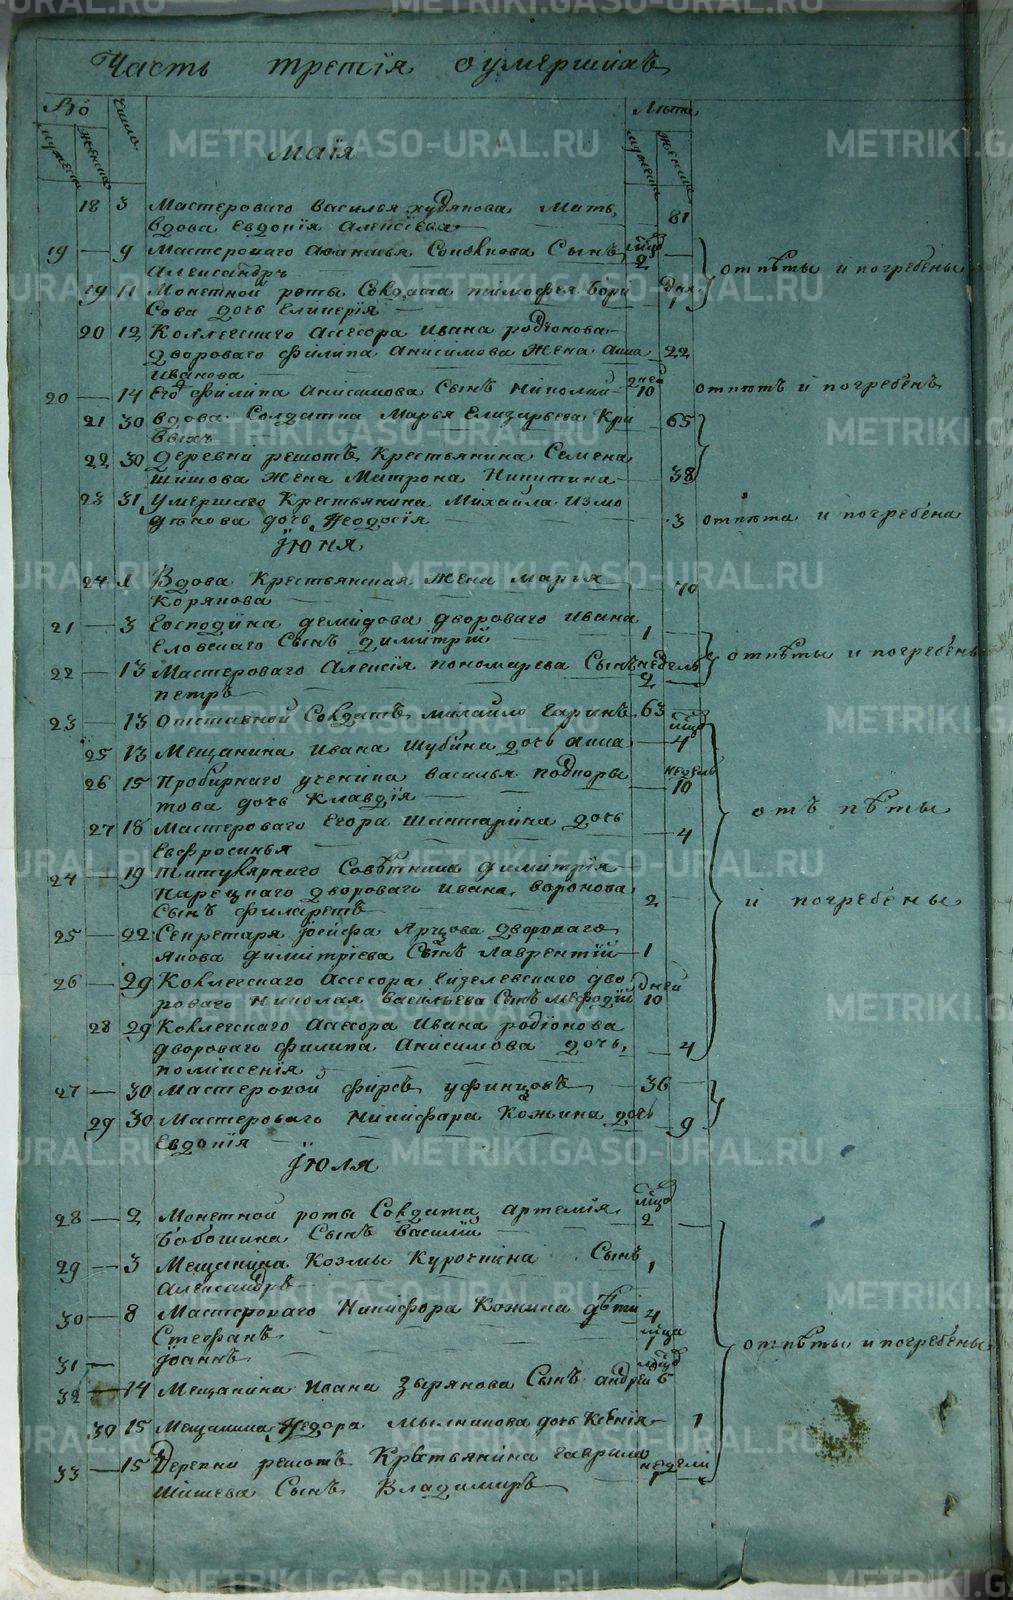 Часть третія оумершихъ
Но
Число
Лѣта
мужеска
женска
мужеска
женска
маія
18 3 Мастероваго Василья худякова Мать
вдова Евдокія Алексіева 81
19 9 Мастероваго Аѳанасья Сынъ мцов
Александръ 2 отпѣты и погребены
19 11 Монетной роты Солдата тимофея Бори дня
сова дочь 1
20 12 Коллечскаго Ассесора Ивана родіонова
дворового филипа Анисимова Жена Анна 22
Иванова
20 14 Его филипа Анисимова Сынъ Николай дней 10 отпетъ и погребенъ
21 30 вдова Солдатка Марья Елизарьева Кри 65
выхъ
22 30 деревни решотъ Крестьянина Семена
шишова Жена Матрона Никитина 38
23 31 умершаго Крестьянина Михайла Измо
денова дочь Ѳеодосія 3 отпѣта и погребена
Іюня
24 1 Вдова Крестьянская Жена Марья
Корякова 70
21 3 Господина демидова дворового Ивана
Еловскаго Сынъ димитрій 1
22 13 Мастероваго Алексія пономарева Сынъ недель отпѣты и погребены
петръ 2
23 13 Отставной Солдатъ михайло Гаринъ 63
25 13 Мещанина Ивана Шубина дочь Анна мцов 4
26 15 Пробирнаго ученика василья подкоры недель
това дочь Клавдія 10
27 18 Мастероваго Егора Шантарина дочь отъ пѣты
Евфросинья 4
24 19 титулярнаго Совѣтника димитрія
Нарецкаго дворового Ивана Воронова
Сынъ филаретъ 2 и погребены
25 22 Секретаря Іосифа Ярцова дворового
Якова димитріева Сынъ Лаврентій 1
26 29 Коллечскаго Ассесора дво дней
роваго Николая васильева Сынъ мефодій 10
28 29 Коллечскаго Ассесора Ивана родіонова
дворового филипа Анисимова дочь 4
поликсенія
27 30 Мастеровой фирсъ уфинцовъ 36
29 30 Мастероваго Никифара Кожина дочь 9
Евдокія
Іюля
28 2 Монетной роты Солдата артемія мцов
Бобошина Сынъ василій 2
29 3 Мещанина Козмы Курочкина Сынъ 1
Александръ
30 8 Мастероваго Никифора Кожина дѣти 4
Стефанъ мца отпѣты и погребены
31 Іоаннъ 1 мцов
32 14 Мещанина Ивана Зырянова Сынъ андрей 5
30 15 Мещанина Ѳедора Мыльникова дочь Ксенія 1
33 15 Деревни решотъ Крестьянина гаврила недели
Шишева Сынъ Владимиръ 1
METRIKI.GASO-URAL.RU